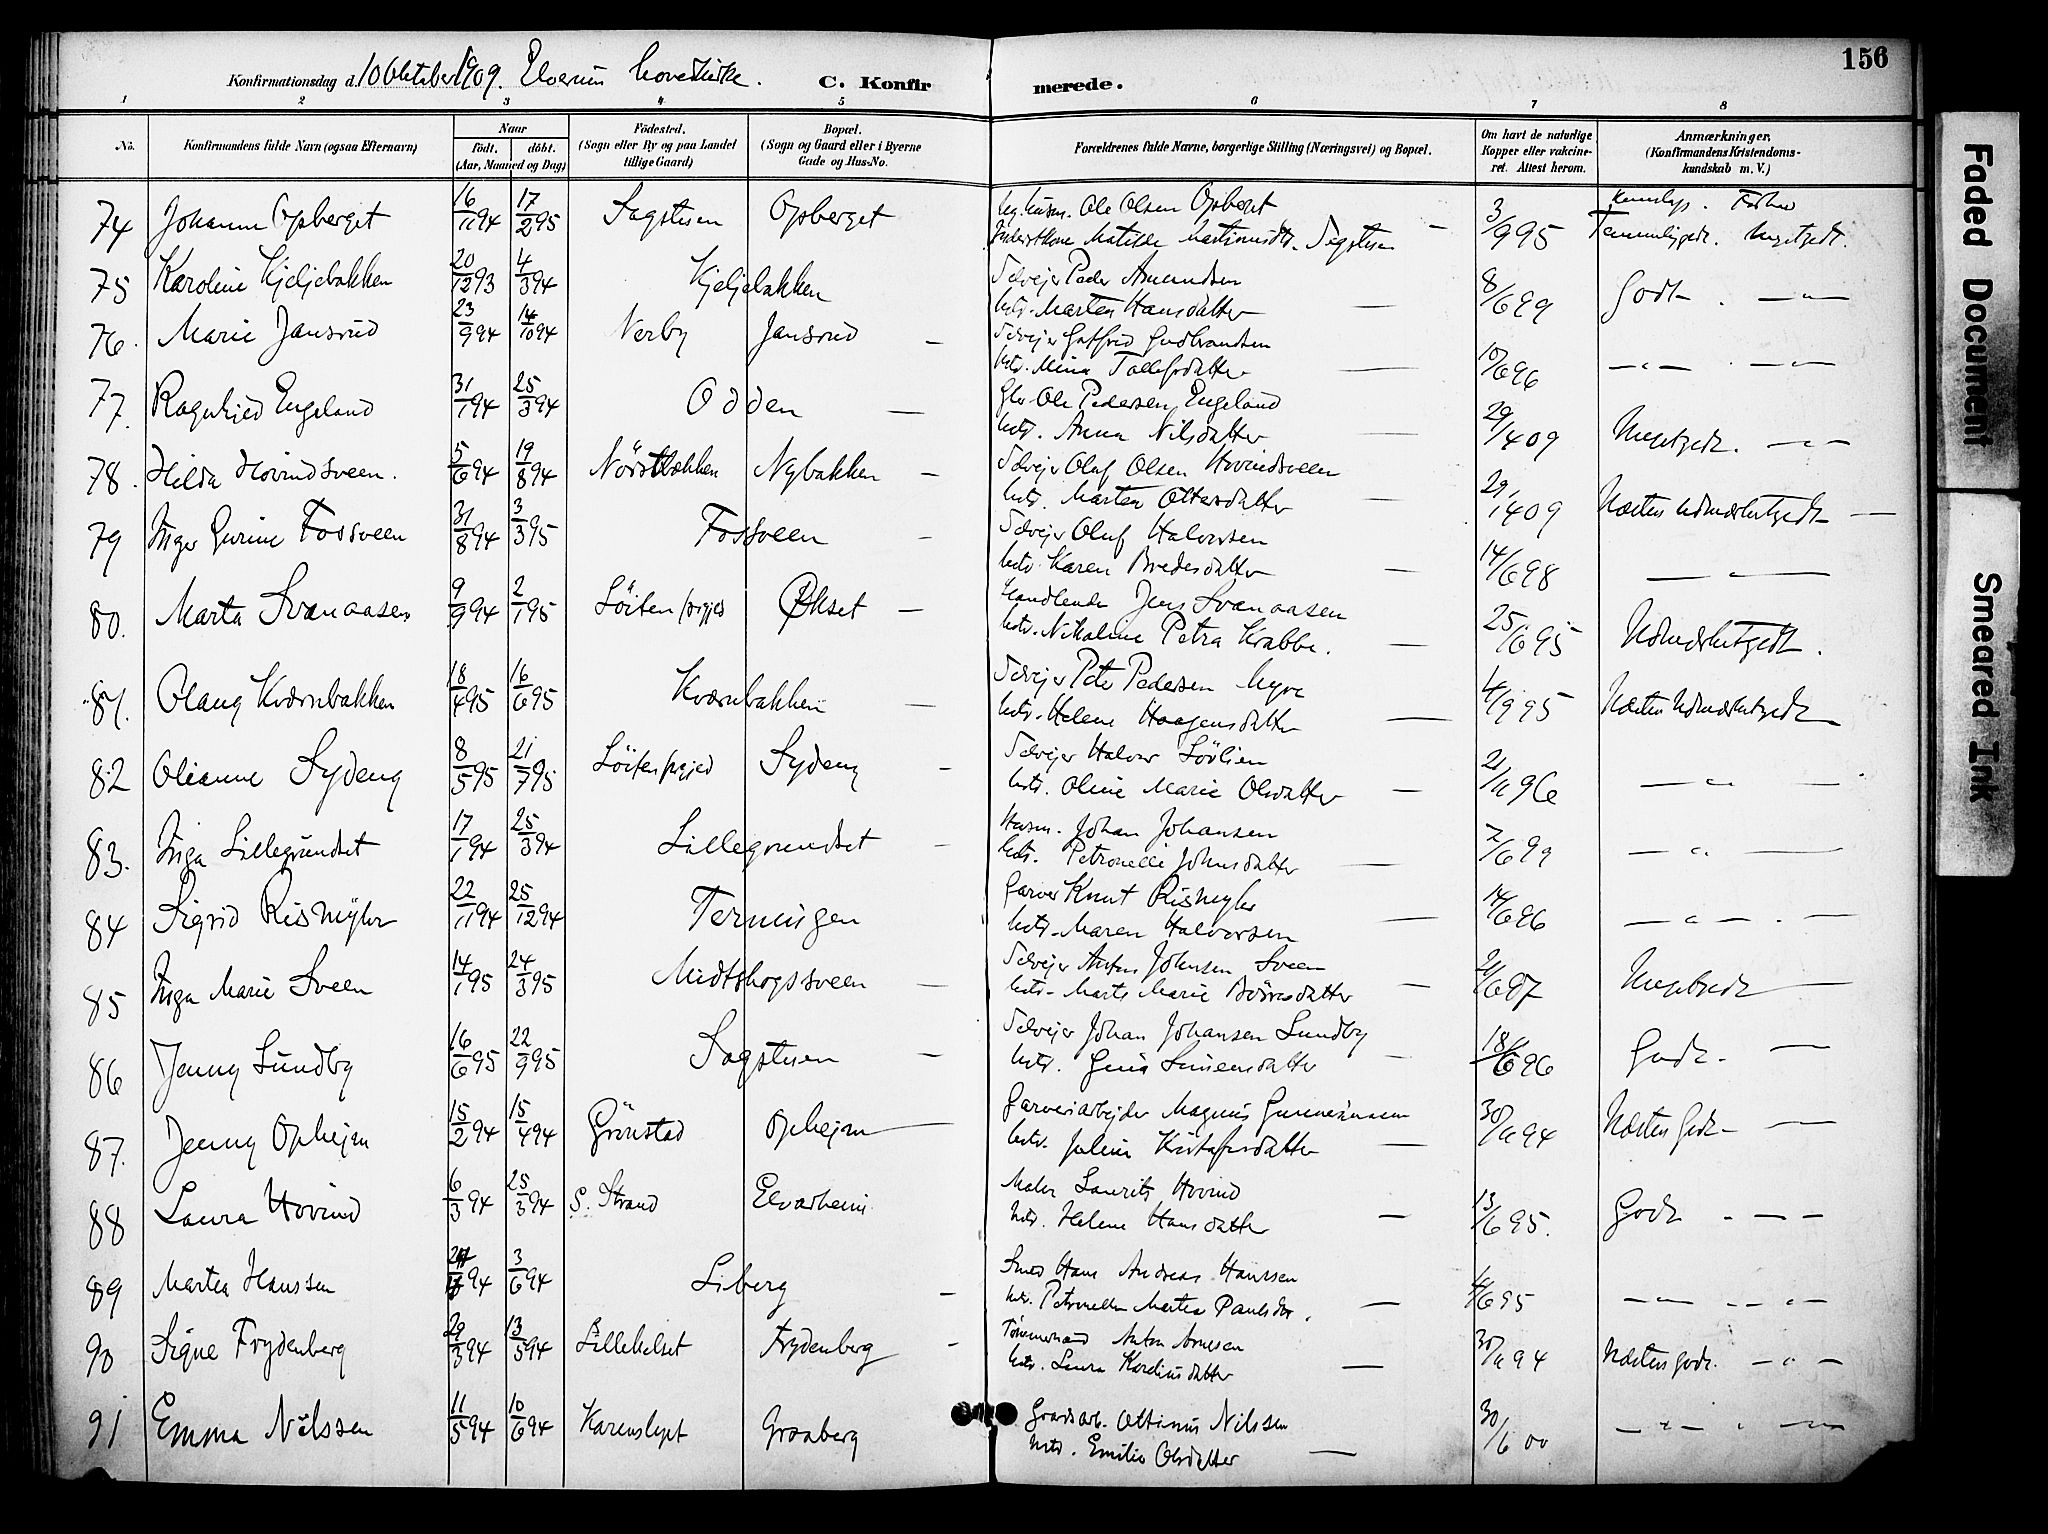 156
Konfirmationsdag d. 10 Oktober 1909. Elverum hovedkirke.
C. Konfirmerede.
1 2 3 4 5 6 7 8
No.
Konfirmandens fulde Navn (ogsaa Efternavn)
Naar
födt. döbt.
(Aar, Maaned og Dag)
Födested.
(Sogn eller By og paa Landet
tillige Gaard)
Bopæl.
(Sogn og Gaard eller i Byerne
Gade og Hus-No.
Forældrenes fulde Navne, borgerlige Stilling (Næringsvei) og Bopæl.
Om havt de naturlige
Kopper eller vakcine-
ret. Attest herom.
Anmærkninger,
(Konfirmandens Kristendoms-
kundskab m. V.)
74 Johanne Opberget 16/11 94 17/2 95 Sagstuen Opberget Ole Olsen Opberget
Matilde Martinusdtr. Sagstuen 3/9 95 Temmeligodt. Megetgodt.
75 Karoline Kjeljebakken 20/12 93 4/3 94 Kjeljebakken Selvejer Peder Amundsen
hstr. Marten Hansdatter — 8/6 99 Godt — " —
76. Marie Jansrud 23/9 94 14/10 94 Nerby Jansrud — Selvejer Gudbrandsen
hstr. Mina Tollefsdatter — 10/6 96 — " — . — " —
77. Ragnhild Engeland 31/1 94 25/3 94 Odden — Ole Pedersen Engeland
hstr. Anna Nilsdatter — 29/4 09 Megetgodt. — " —
78. Hilda Hovindsveen. 5/6 94 19/8 94 Nörstbakken Nybakken — Selvejer Oluf Olsen Hovindsveen
hstr. Marten Ottersdatter — 29/1 09 Næsten Udmærketgodt —
79 Inger Gurine Fossveen 31/8 94 3/3 95 Fossveen — Selvejer Oluf Halvorsen
hstr. Karen Bredesdatter — 14/6 98 — " —
80. Marta Svenaasen 9/9 94 2/1 95 Löiten prgjed Økset — Handlende Jens Svenaasen
hstr. Nikoline Petra Krabbe. — 25/6 95 Udmærketgodt.
81. Olaug Kværnbakken 18/4 95 16/6 95 Kværnbakken — Selvejer Peter Pedersen Myre
hstr. Helene Haagensdatter — 4/9 95 Næsten Udmærketgodt
82 Olianne Sydeng 8/5 95 21/7 95 Löiten prgjed Sydeng — Selvejer Halvor Lövlien
hstr. Oline Marie Olsdatter — 21/11 96 — " —
83. Inga Lillegrundset 17/1 94 25/3 94 Lillegrundset — Husm. Johan Johansen
hstr. Petronelle Johnsdatter — 7/6 99 — " —
84 Sigrid Rismyhr 22/11 94 25/12 94 Terningen Garver Knut Rismyhr
hstr. Maren Halvorsen — 14/6 96 — " — . —
85 Inga Marie Sveen 14/1 95 24/3 95 Midtskogssveen — Selvejer Anton Johnsen Sveen
hstr. Marte Marie Björnsdatter — 21/6 07 Megetgodt —
86 Jenny Sundby 16/6 95 22/9 95 Sagstuen — Selvejer Johan Johansen Sundby
hstr. Simensdatter — 18/6 96 Godt. —
87. Jenny Opheim 15/2 94 15/4 94 Grönstad Opheim — Garveriarbejder Magnus Gunnerinsen
hstr. Juline Kristofersdatter — 30/11 94 Næsten Godt —
88 Laura Hovind 6/3 94 25/3 94 S. Strand Elvarheim Maler Laurits Hovind
hstr. Helene Hansdatter — 13/6 95. Godt — " —
89 Martea Hanssen 94 3/6 94 Liberg — Smed Hans Andreas Hanssen
hstr. Petronella Martea Paulsdtr. — 4/6 95 — " — — " —
90 Signe Frydenberg 29/3 94 13/5 94 Lillekelset Frydenberg — Tömmermand Anton Arnesen
hstr. Laura Kordiusdatter — 30/11 94 Næsten godt. — " —
91 Emma Nilssen 11/5 94 10/6 94 Karenslyst Graaberg Ottinius Nilssen
hstr. Emilie Olsdatter — 30/6 00 — " — " — " —
Faded Document
Smeared Ink